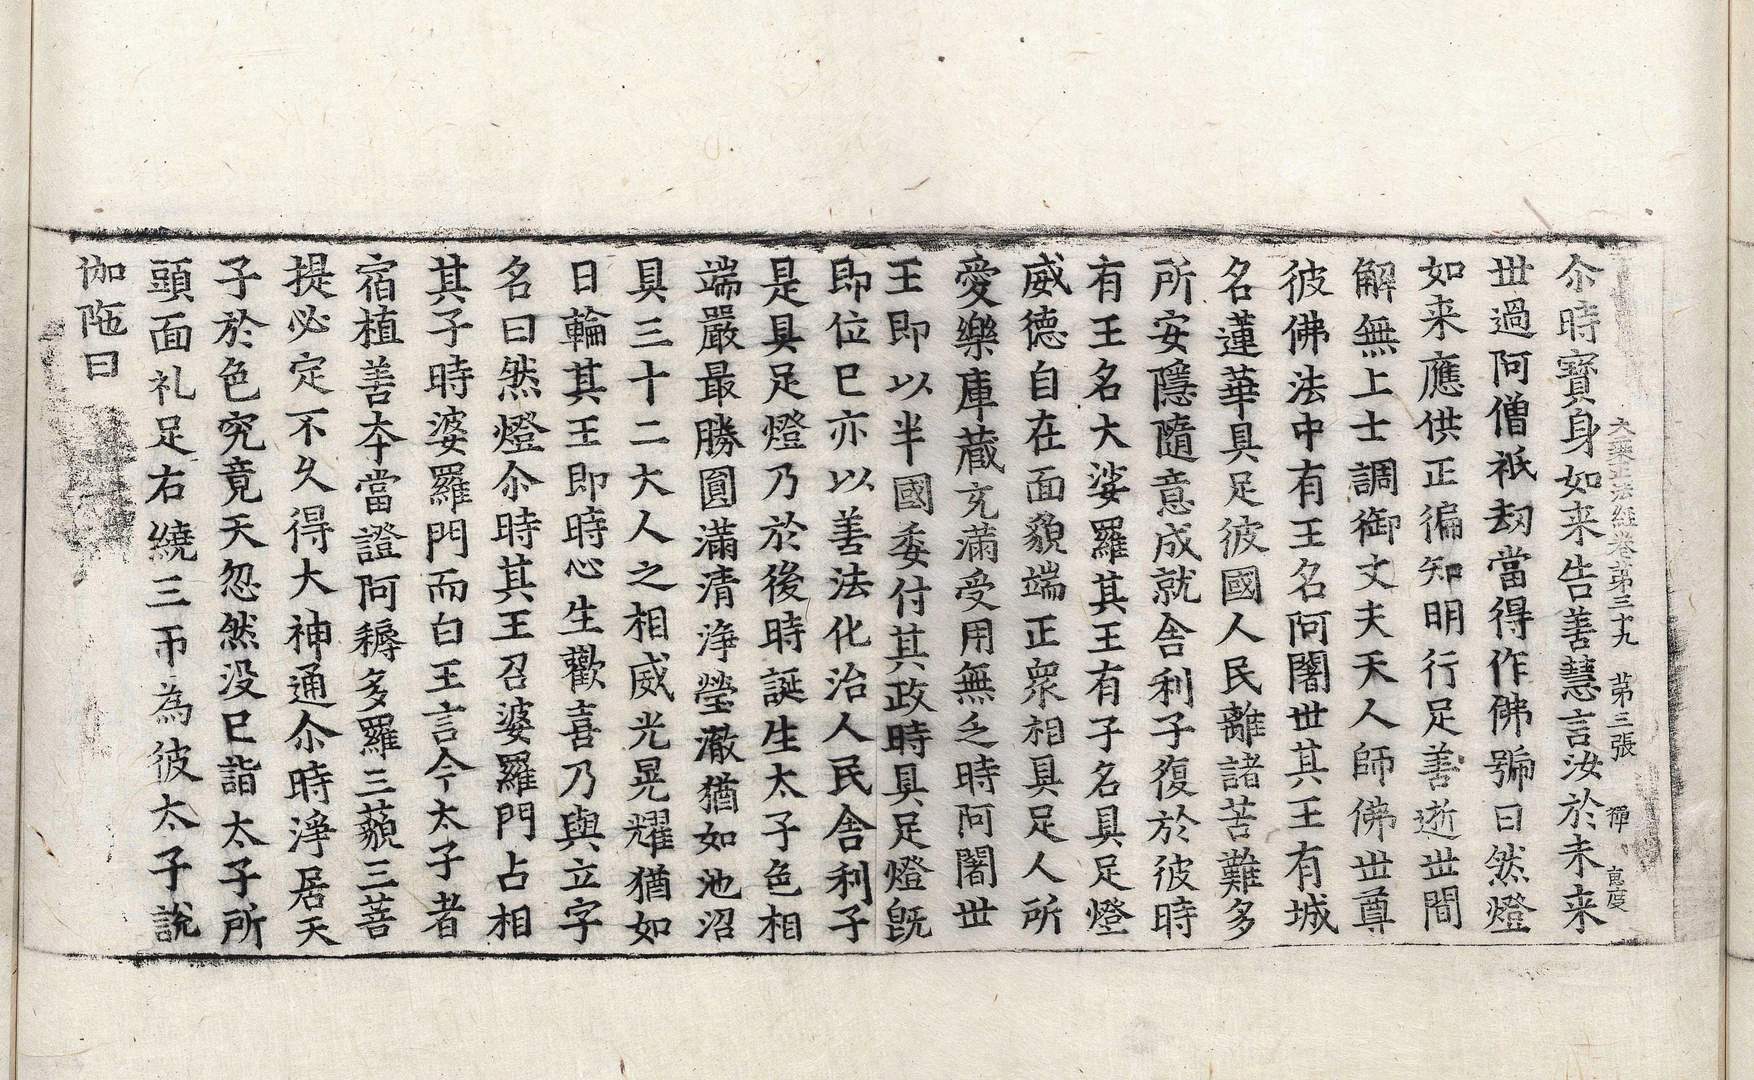 大乘正法經卷第三十九　第三張　禪
尒時寶身如来告善慧言汝於未来
世過阿僧祇劫當得作佛號曰然燈
如来應供正徧知明行足善逝世間
解無上士調御丈夫天人師佛世尊
彼佛法中有王名阿闍世其王有城
名蓮華具足彼國人民離諸苦難多
所安隱隨意成就舍利子復於彼時
有王名大娑羅其王有子名具足燈
威德自在面貌端正衆相具足人所
愛樂庫藏充滿受用無乏時阿闍世
王即以半國委付其政時具足燈旣
即位已亦以善法化治人民舍利子
是具足燈乃於後時誕生太子色相
端嚴最勝圓滿清淨瑩澈猶如池沼
具三十二大人之相威光晃耀猶如
日輪其王即時心生歡喜乃與立字
名曰然燈尒時其王召婆羅門占相
其子時婆羅門而白王言今太子者
宿植善夲當證阿耨多羅三藐三菩
提必定不久得大神通尒時淨居天
子於色究竟天忽然没已詣太子所
頭面礼足右繞三帀為彼太子說
伽陁曰